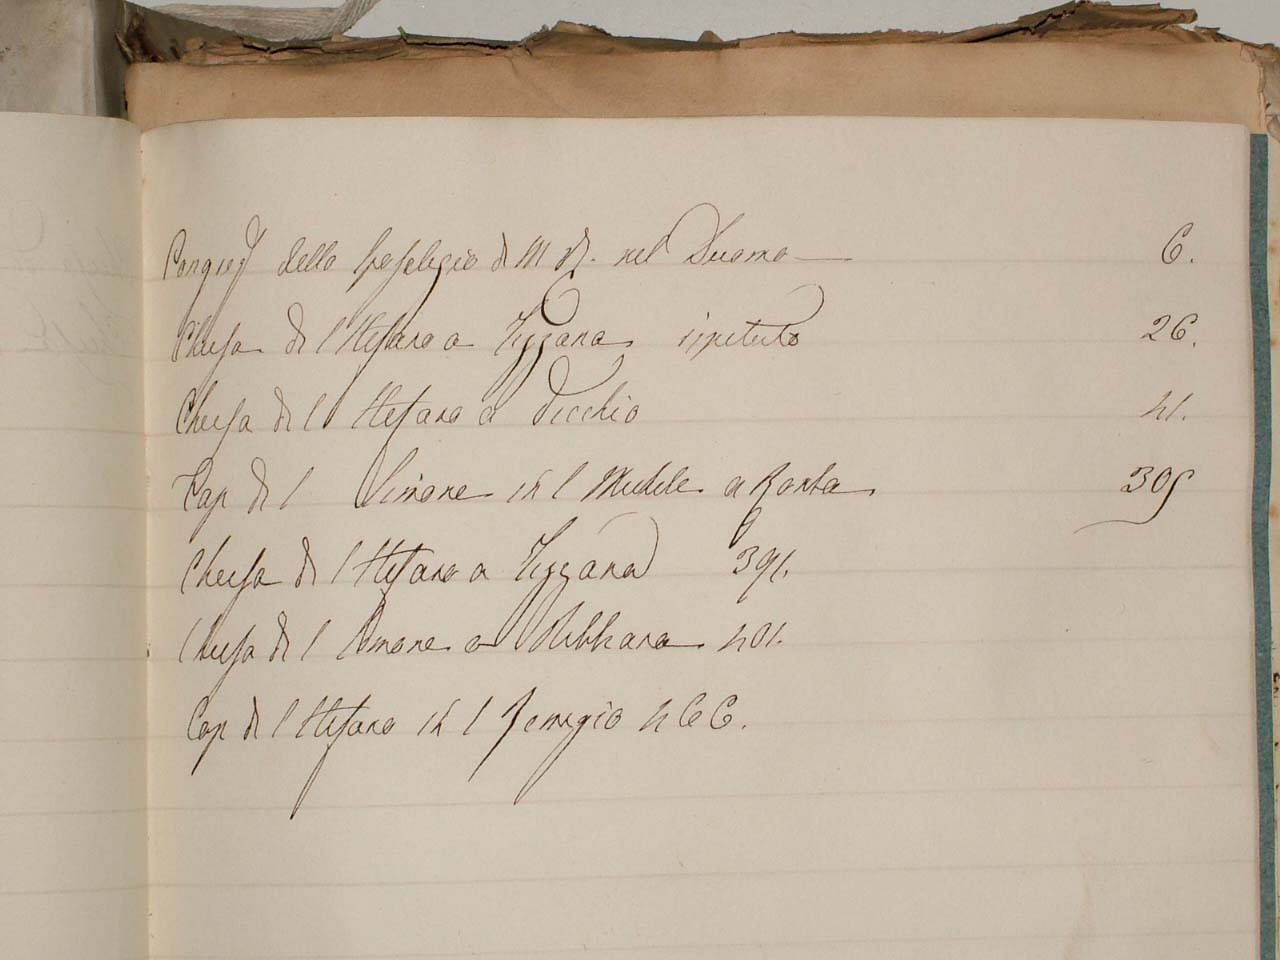 Congreg dello Sposalizio di M V. nel Duomo 6.
Chiesa di S Stefano a Tizzana ripetuto 26.
Chiesa di S Stefano a Vicchio 41.
Cap di S Simone in S Michele a Ronta 305
Chiesa di S Stefano a Tizzana 391.
Chiesa di S Simone a 401.
Cap di S Stefano in S Remigio 466.